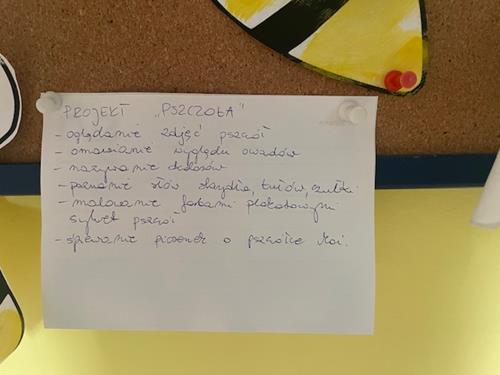 PROJEKT „PSZCZOŁA"
- oglądanie zdjęć pszczół
- omawianie wyglądu owadów
- nazywanie kolorów
- poznanie słów skrzydła, tułów, czułki
- malowanie farbami plakatowymi
sylwet pszczół
- śpiewanie piosenek o pszczółce Mai.